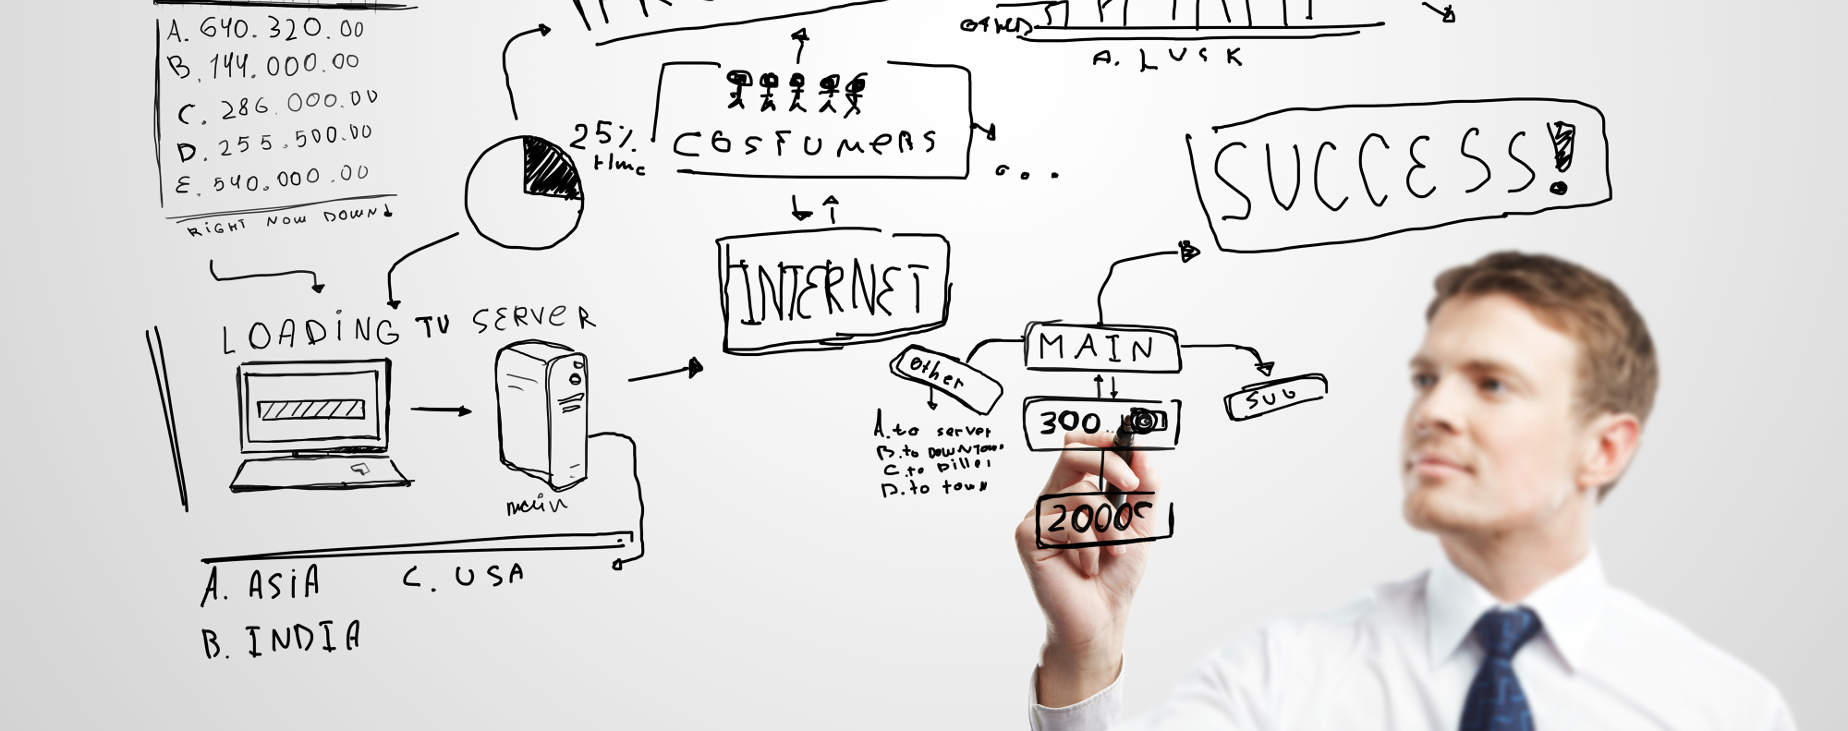 A. 640.320.00
B. 144.000.00
C. 286.000.00
D. 255.500.00
E. 540.000.00
RIGHT NOW DOWN
25%
time
COSTUMERS
...
OTHER
A. LUSK
SUCCESS!
LOADING TO SERVER
main
INTERNET
MAIN
other
SUB
300
A. to server
B. to DOWNTOWN
C. to
D. to town
2000
A. ASIA
C. USA
B. INDIA